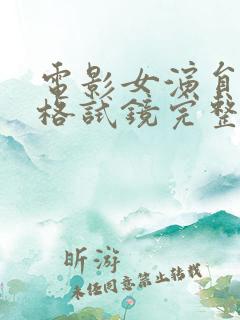 電影女演員
格試鏡完整
昕游
未经同意禁止转载